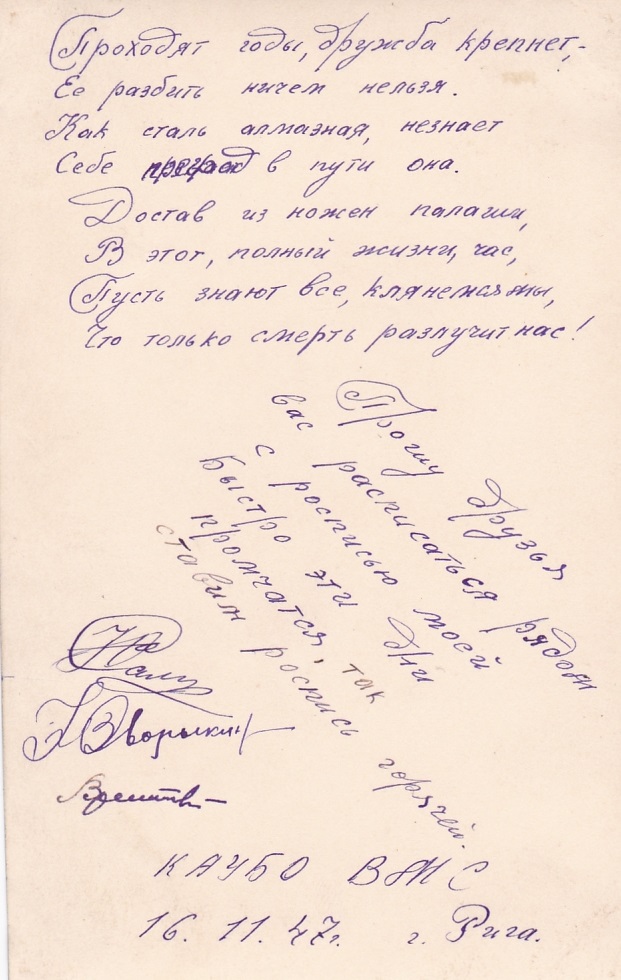 Проходят годы, дружба крепнет,-
Ее разбить ничем нельзя.
Как сталь алмазная, незнает
Себе преград в пути она.
Достав из ножен палаши,
В этот, полный жизни, час,
Пусть знают все, клянемся мы,
Что только смерть разлучит нас!
Прошу друзья
вас расписаться рядом
с росписью моей
Быстро эти дни
промчатся, так
ставим роспись горячей.
КАУБО ВМС
16. 11. 47г. г. Рига.